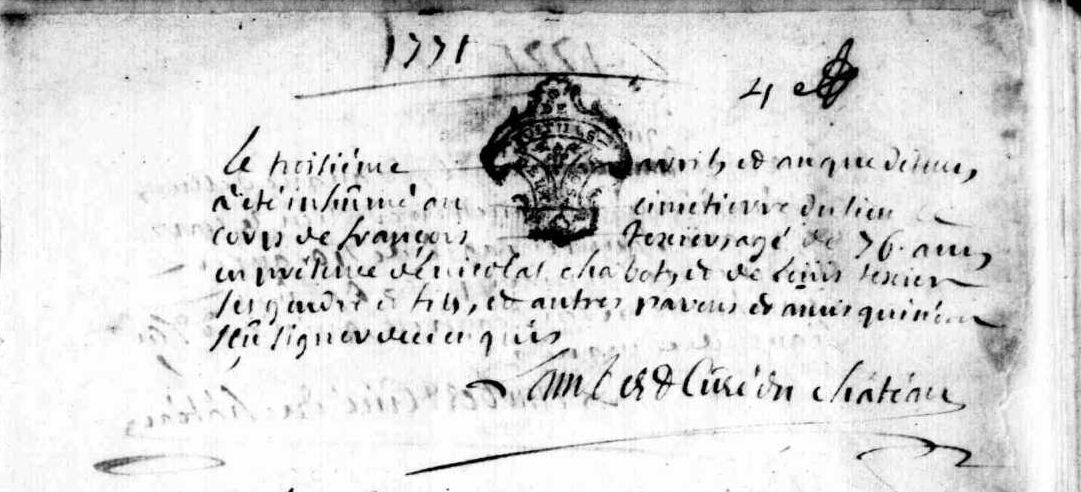 1771
4e
le troisiême avrils et an que dessus,
a été inhûmé au cimétierre du lieu le
corps de françois texier agé de 76. ans,
en présence dé nicolas chabots, et de loüis texier
ses gendre et fils, et autres parens et amis qui n'ont
sçû signer de ce enquis
Lambert Curé du château